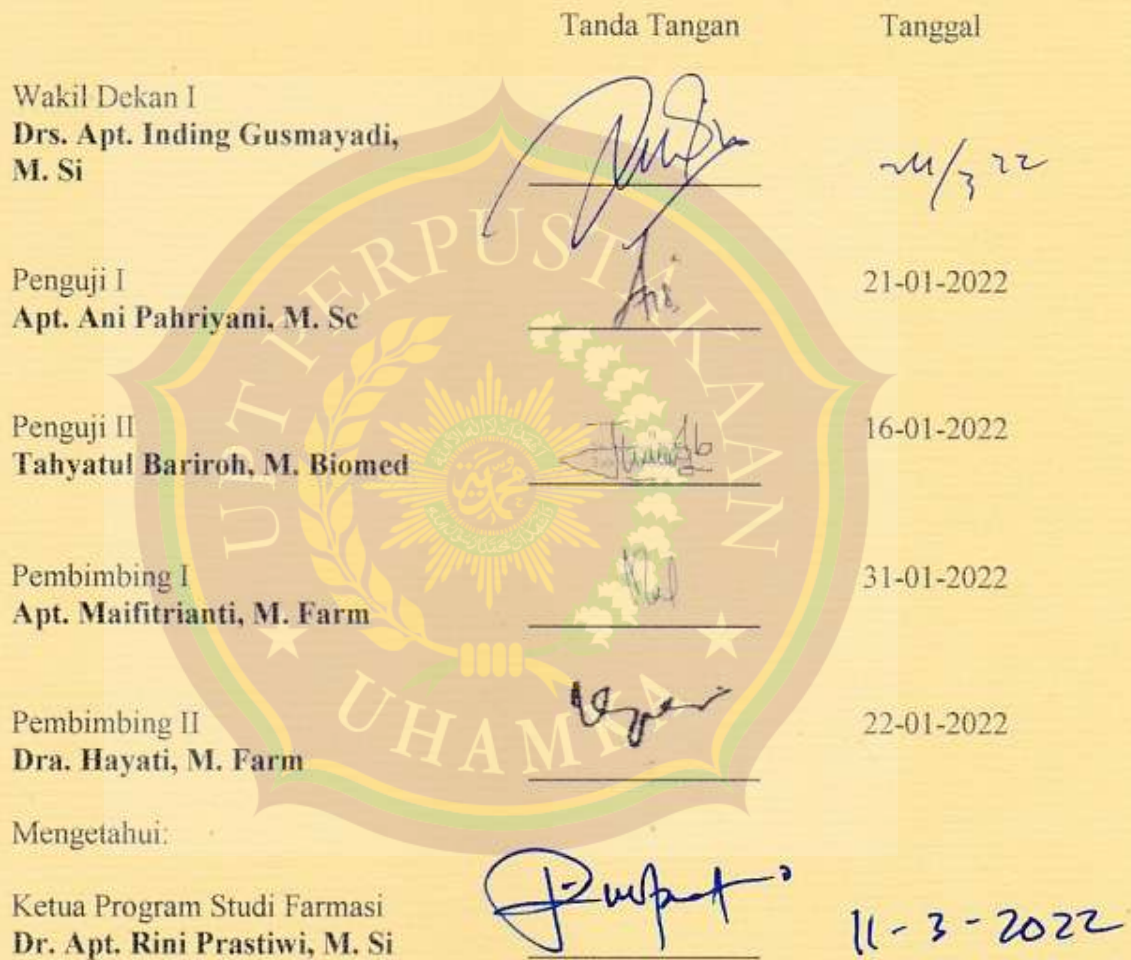 Tanda Tangan Tanggal
Wakil Dekan I
Drs. Apt. Inding Gusmayadi,
M. Si
/3 22
Penguji I
Apt. Ani Pahriyani, M. Sc
21-01-2022
Penguji II
Tahyatul Bariroh, M. Biomed
16-01-2022
Pembimbing I
Apt. Maifitrianti, M. Farm
31-01-2022
Pembimbing II
Dra. Hayati, M. Farm
22-01-2022
Mengetahui:
Ketua Program Studi Farmasi
Dr. Apt. Rini Prastiwi, M. Si
11-3-2022
UPT PERPUSTAKAAN
UHAMKA